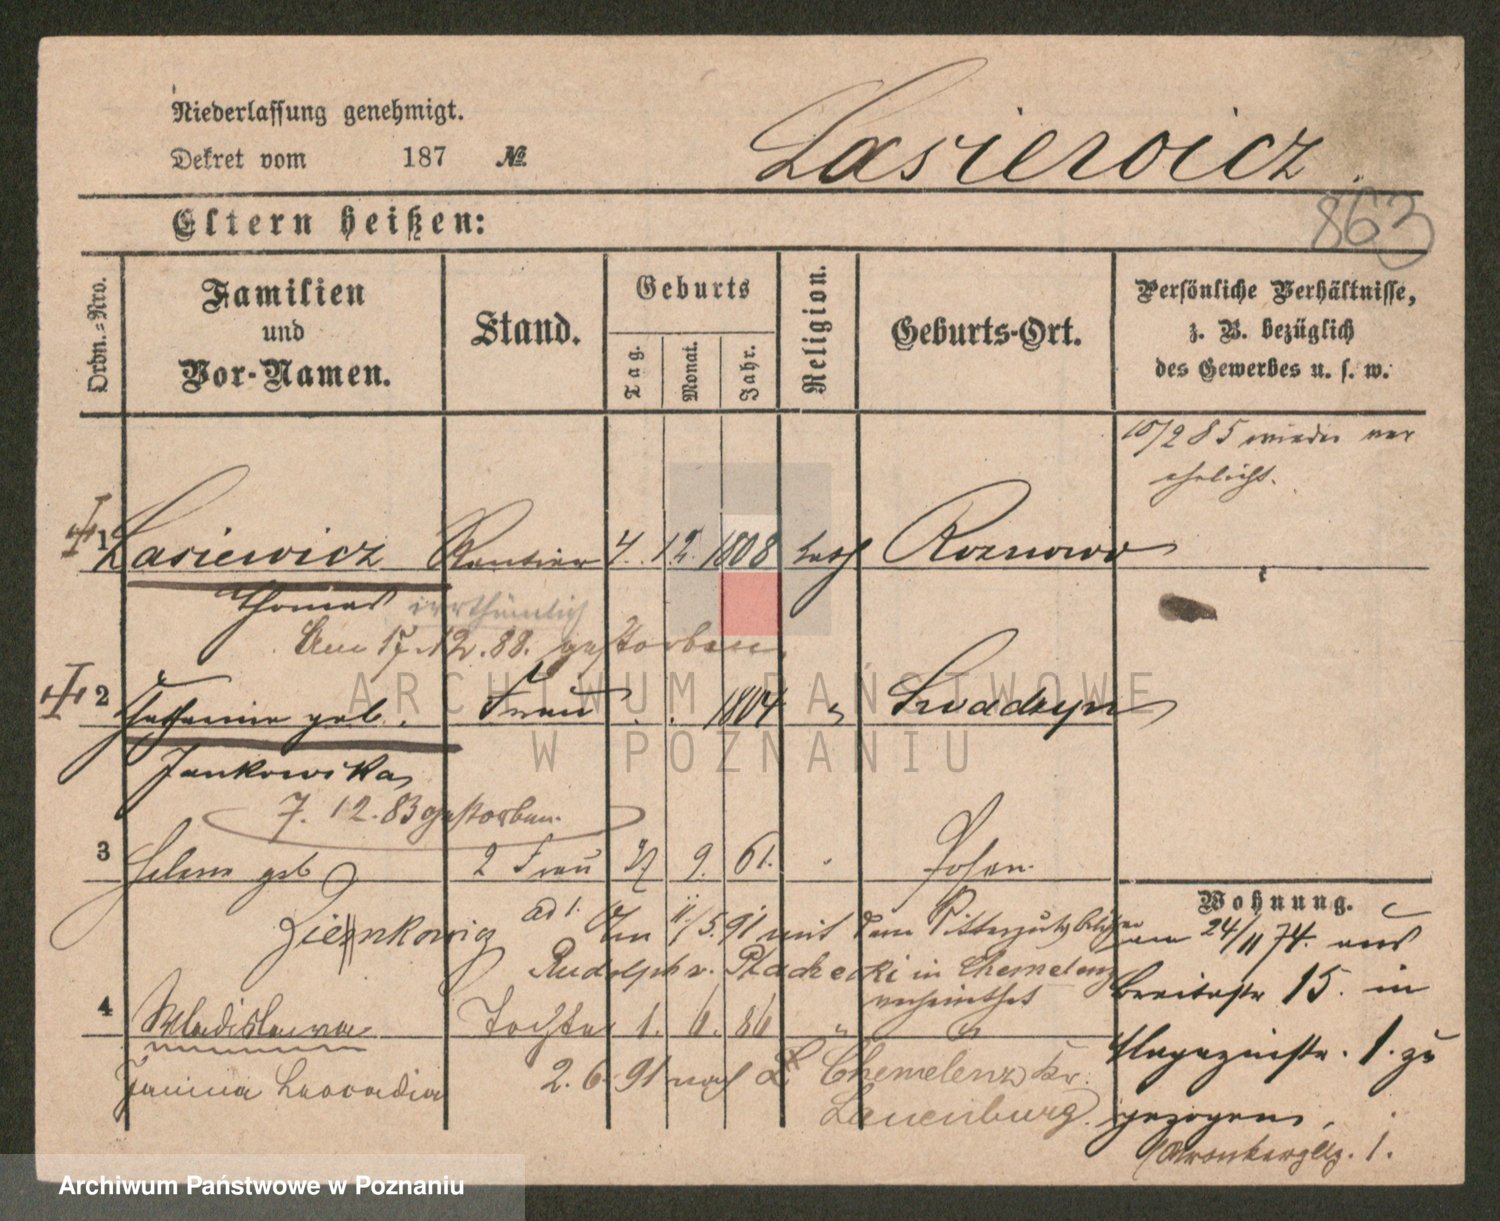 Niederlassung genehmigt.
Dekret vom 187 №
Lasiewicz
863
Eltern heißen:
Ordn.=Nro.
Familien
und
Vor-Namen.
Stand.
Geburts
Tag.
Monat.
Jahr.
Religion.
Geburts-Ort.
Persönliche Verhältnisse,
z. B. bezüglich
des Gewerbes u. s. w.
10/2 85 wieder ver
ehelicht.
1 Lasiewicz Rentier 4. 12. 1808 kath Roznowo
Thomas irrthümlich
Am 17. 12. 88. gestorben
2 geb. Frau 1804 "
Jankowska
7. 12. 83 gestorben.
3 Helene geb 2 Frau 27 9. 61. Posen.
Zienkowicz
ad 1. Am 11/5. 91 mit dem Rittergutsbesitzer
Rudolph v. in Chemelenz
verheirathet
4 Wladislawa Tochter 1. 6. 86 " "
Janina Leocadia
2. 6. 91 nach Chemelenz Kr.
Lauenburg.
Wohnung.
am 24/11 74. aus
Breitestr 15. in
Magazinstr. 1. zu
gezogen.
1.
ARCHIWUM PAŃSTWOWE
W POZNANIU
Archiwum Państwowe w Poznaniu